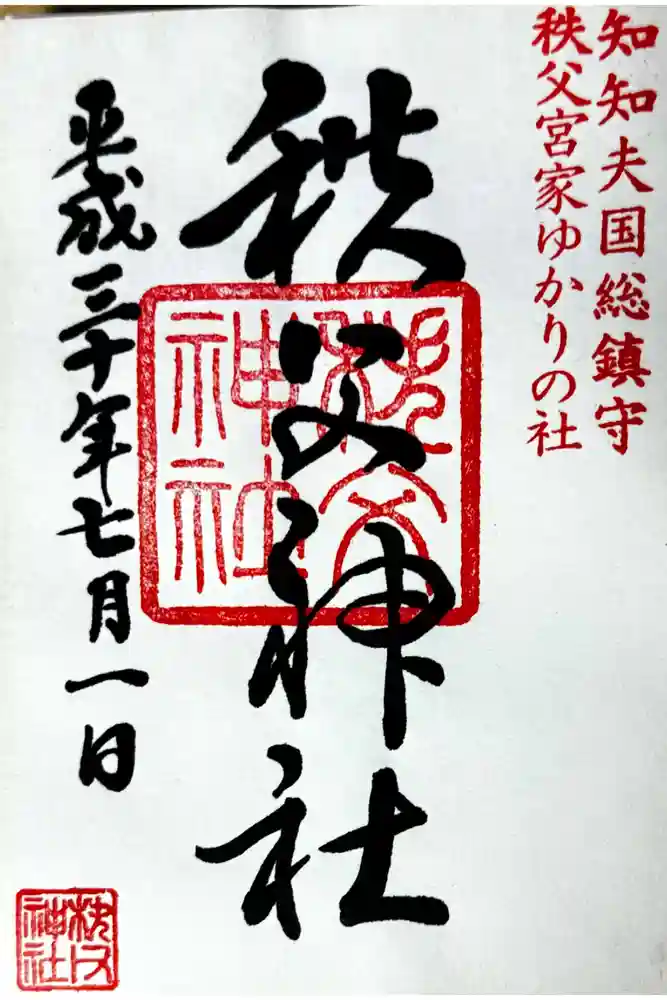 知知夫国総鎮守
秩父宮家ゆかりの社
秩父神社
秩父神社
平成三十年七月一日
秩父神社